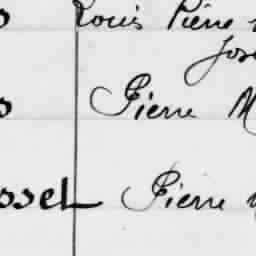 Louis Pierre
Jose
Pierre M
ssel Pierre